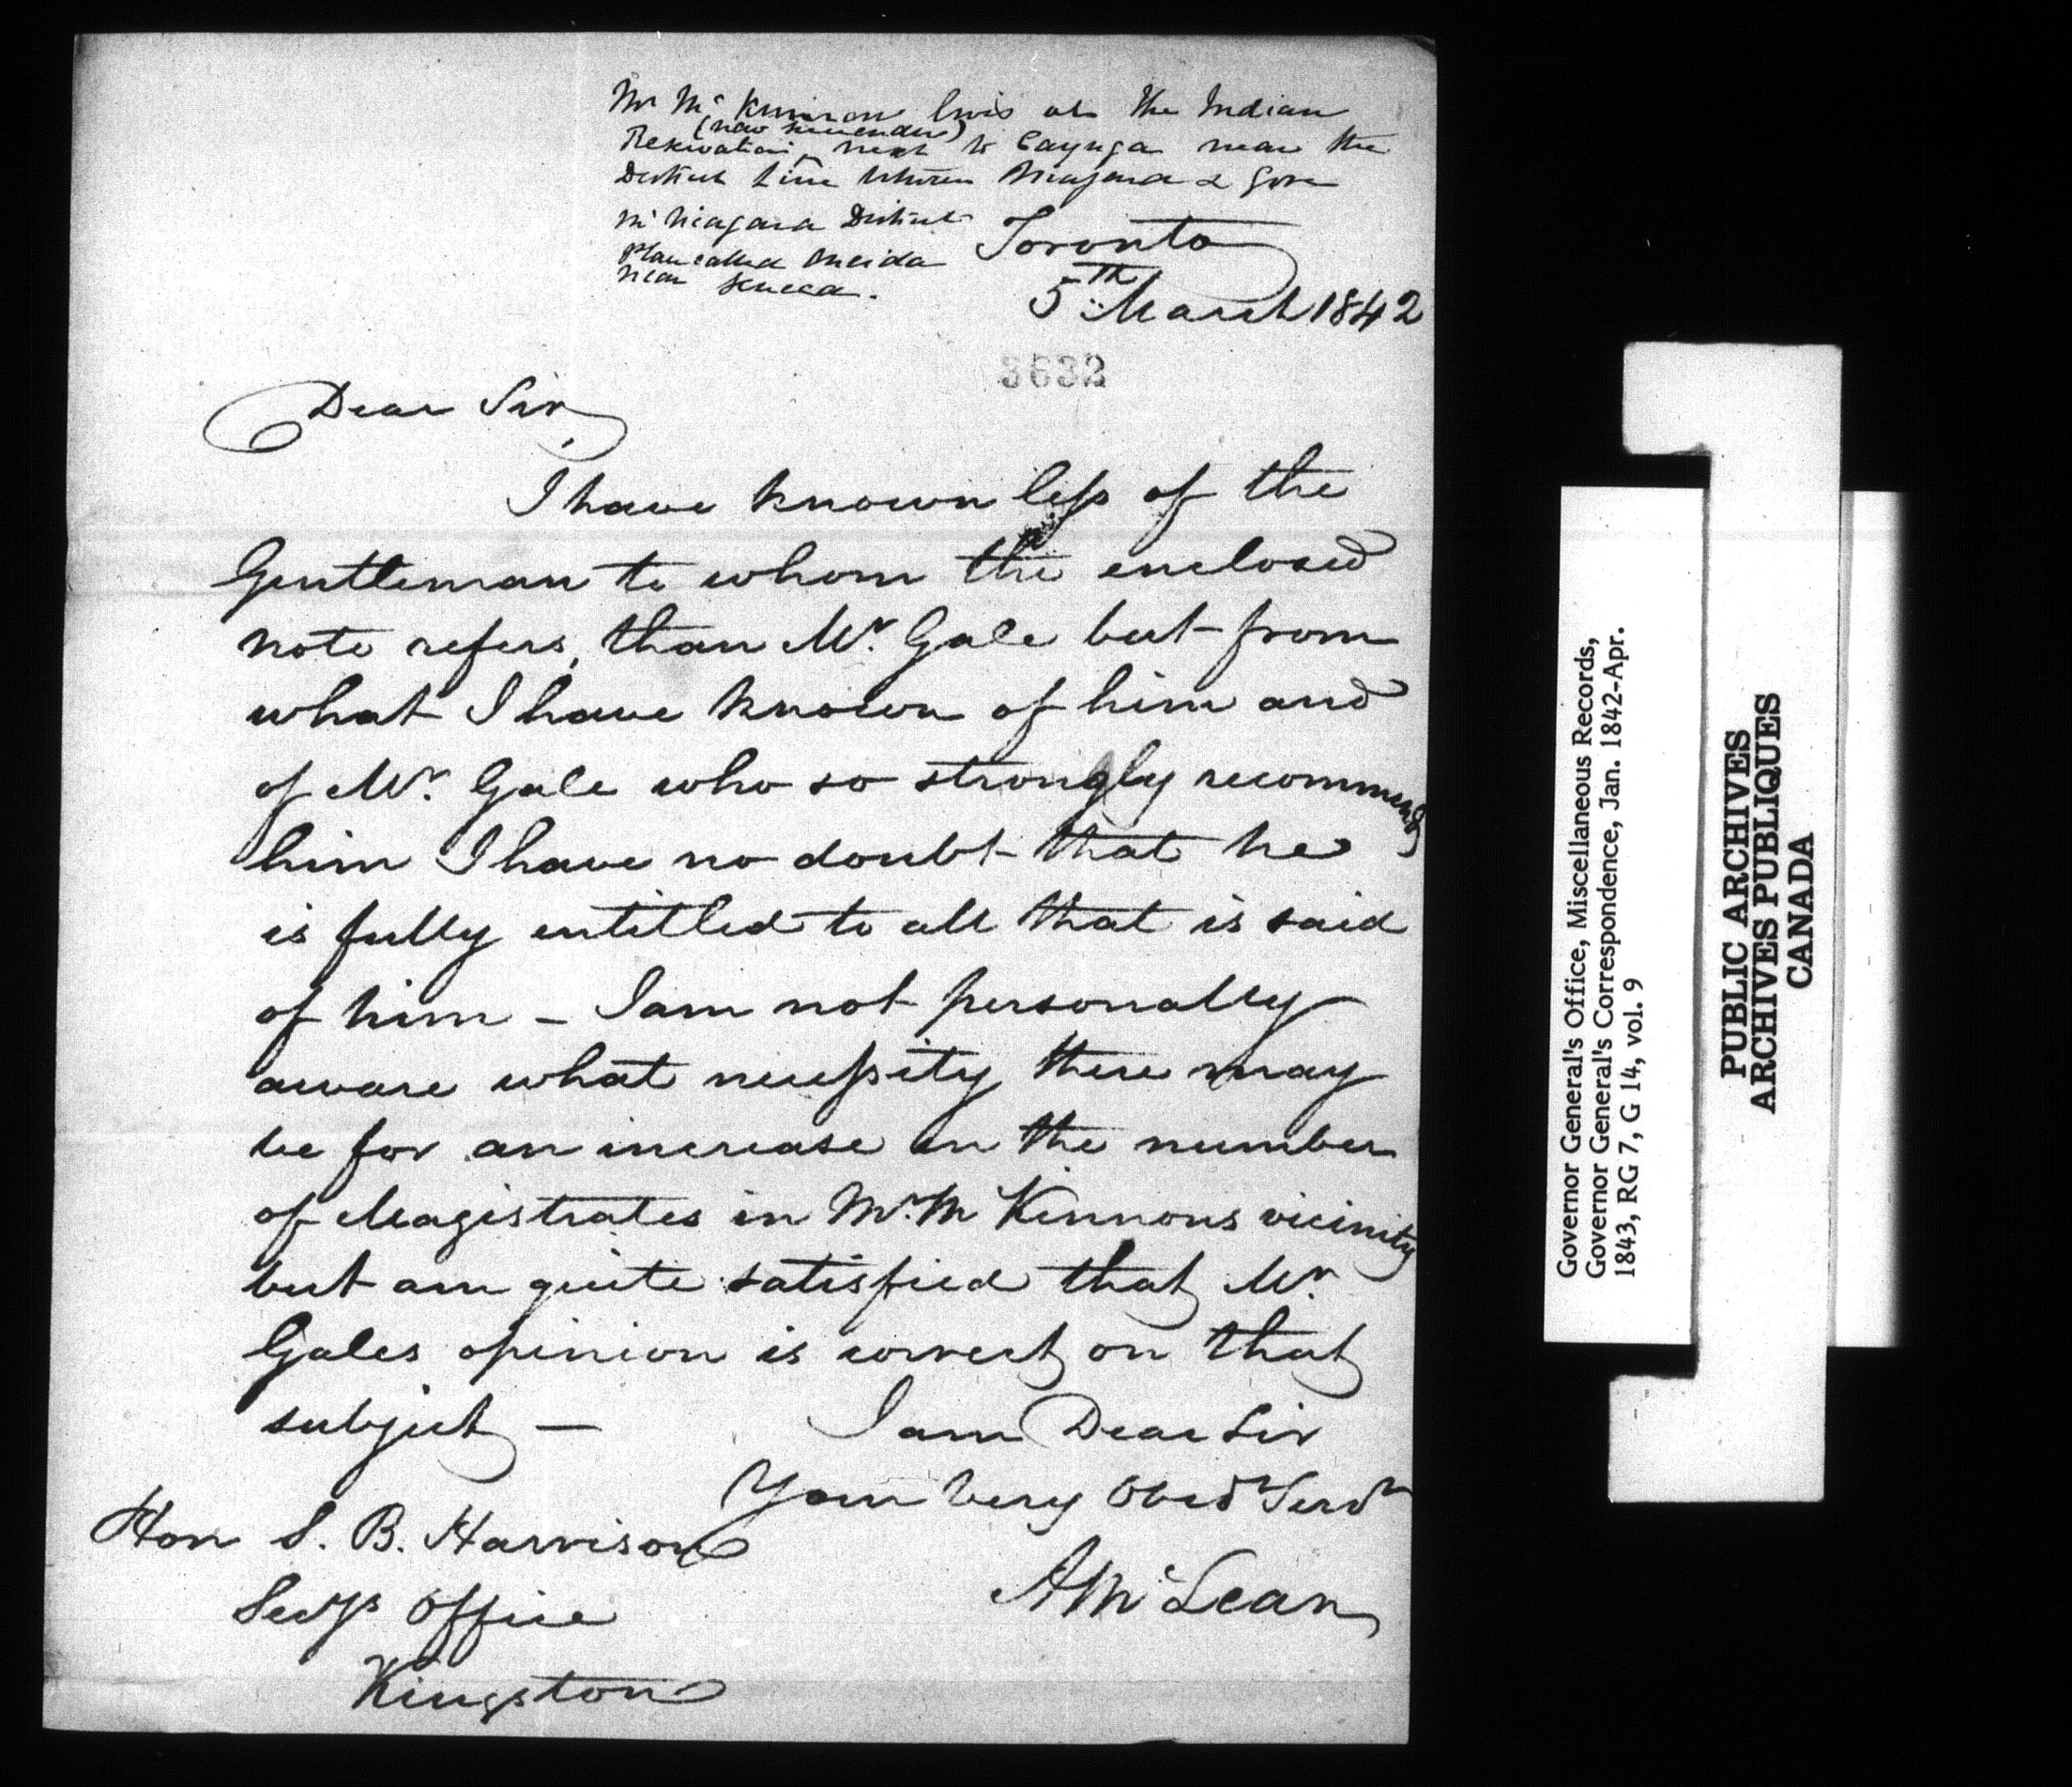 Mr McKinnon lives at the Indian
(now surrendered)
Reservation next to Cayuga near the
District Line between Niagara & Gore
in Niagara District
Place called Oneida
near Seneca.
Toronto
5th March 1842
3632
Dear Sir,
I have known less of the
Gentleman to whom the enclosed
note refers, than Mr. Gale but from
what I have known of him and
of Mr. Gale who so strongly recommends
him I have no doubt that he
is fully entitled to all that is said
of him – I am not personally
aware what necessity there may
be for an increase in the number
of Magistrates in Mr. McKinnons vicinity
but am quite satisfied that Mr.
Gales opinion is correct on that
subject —
I am Dear Sir
Your very Obedt Servt
A McLean
Hon S. B. Harrison
Secys Office
Kingston
Governor General's Office, Miscellaneous Records,
Governor General's Correspondence, Jan. 1842-Apr.
1843, RG 7, G 14, vol. 9
PUBLIC ARCHIVES
ARCHIVES PUBLIQUES
CANADA